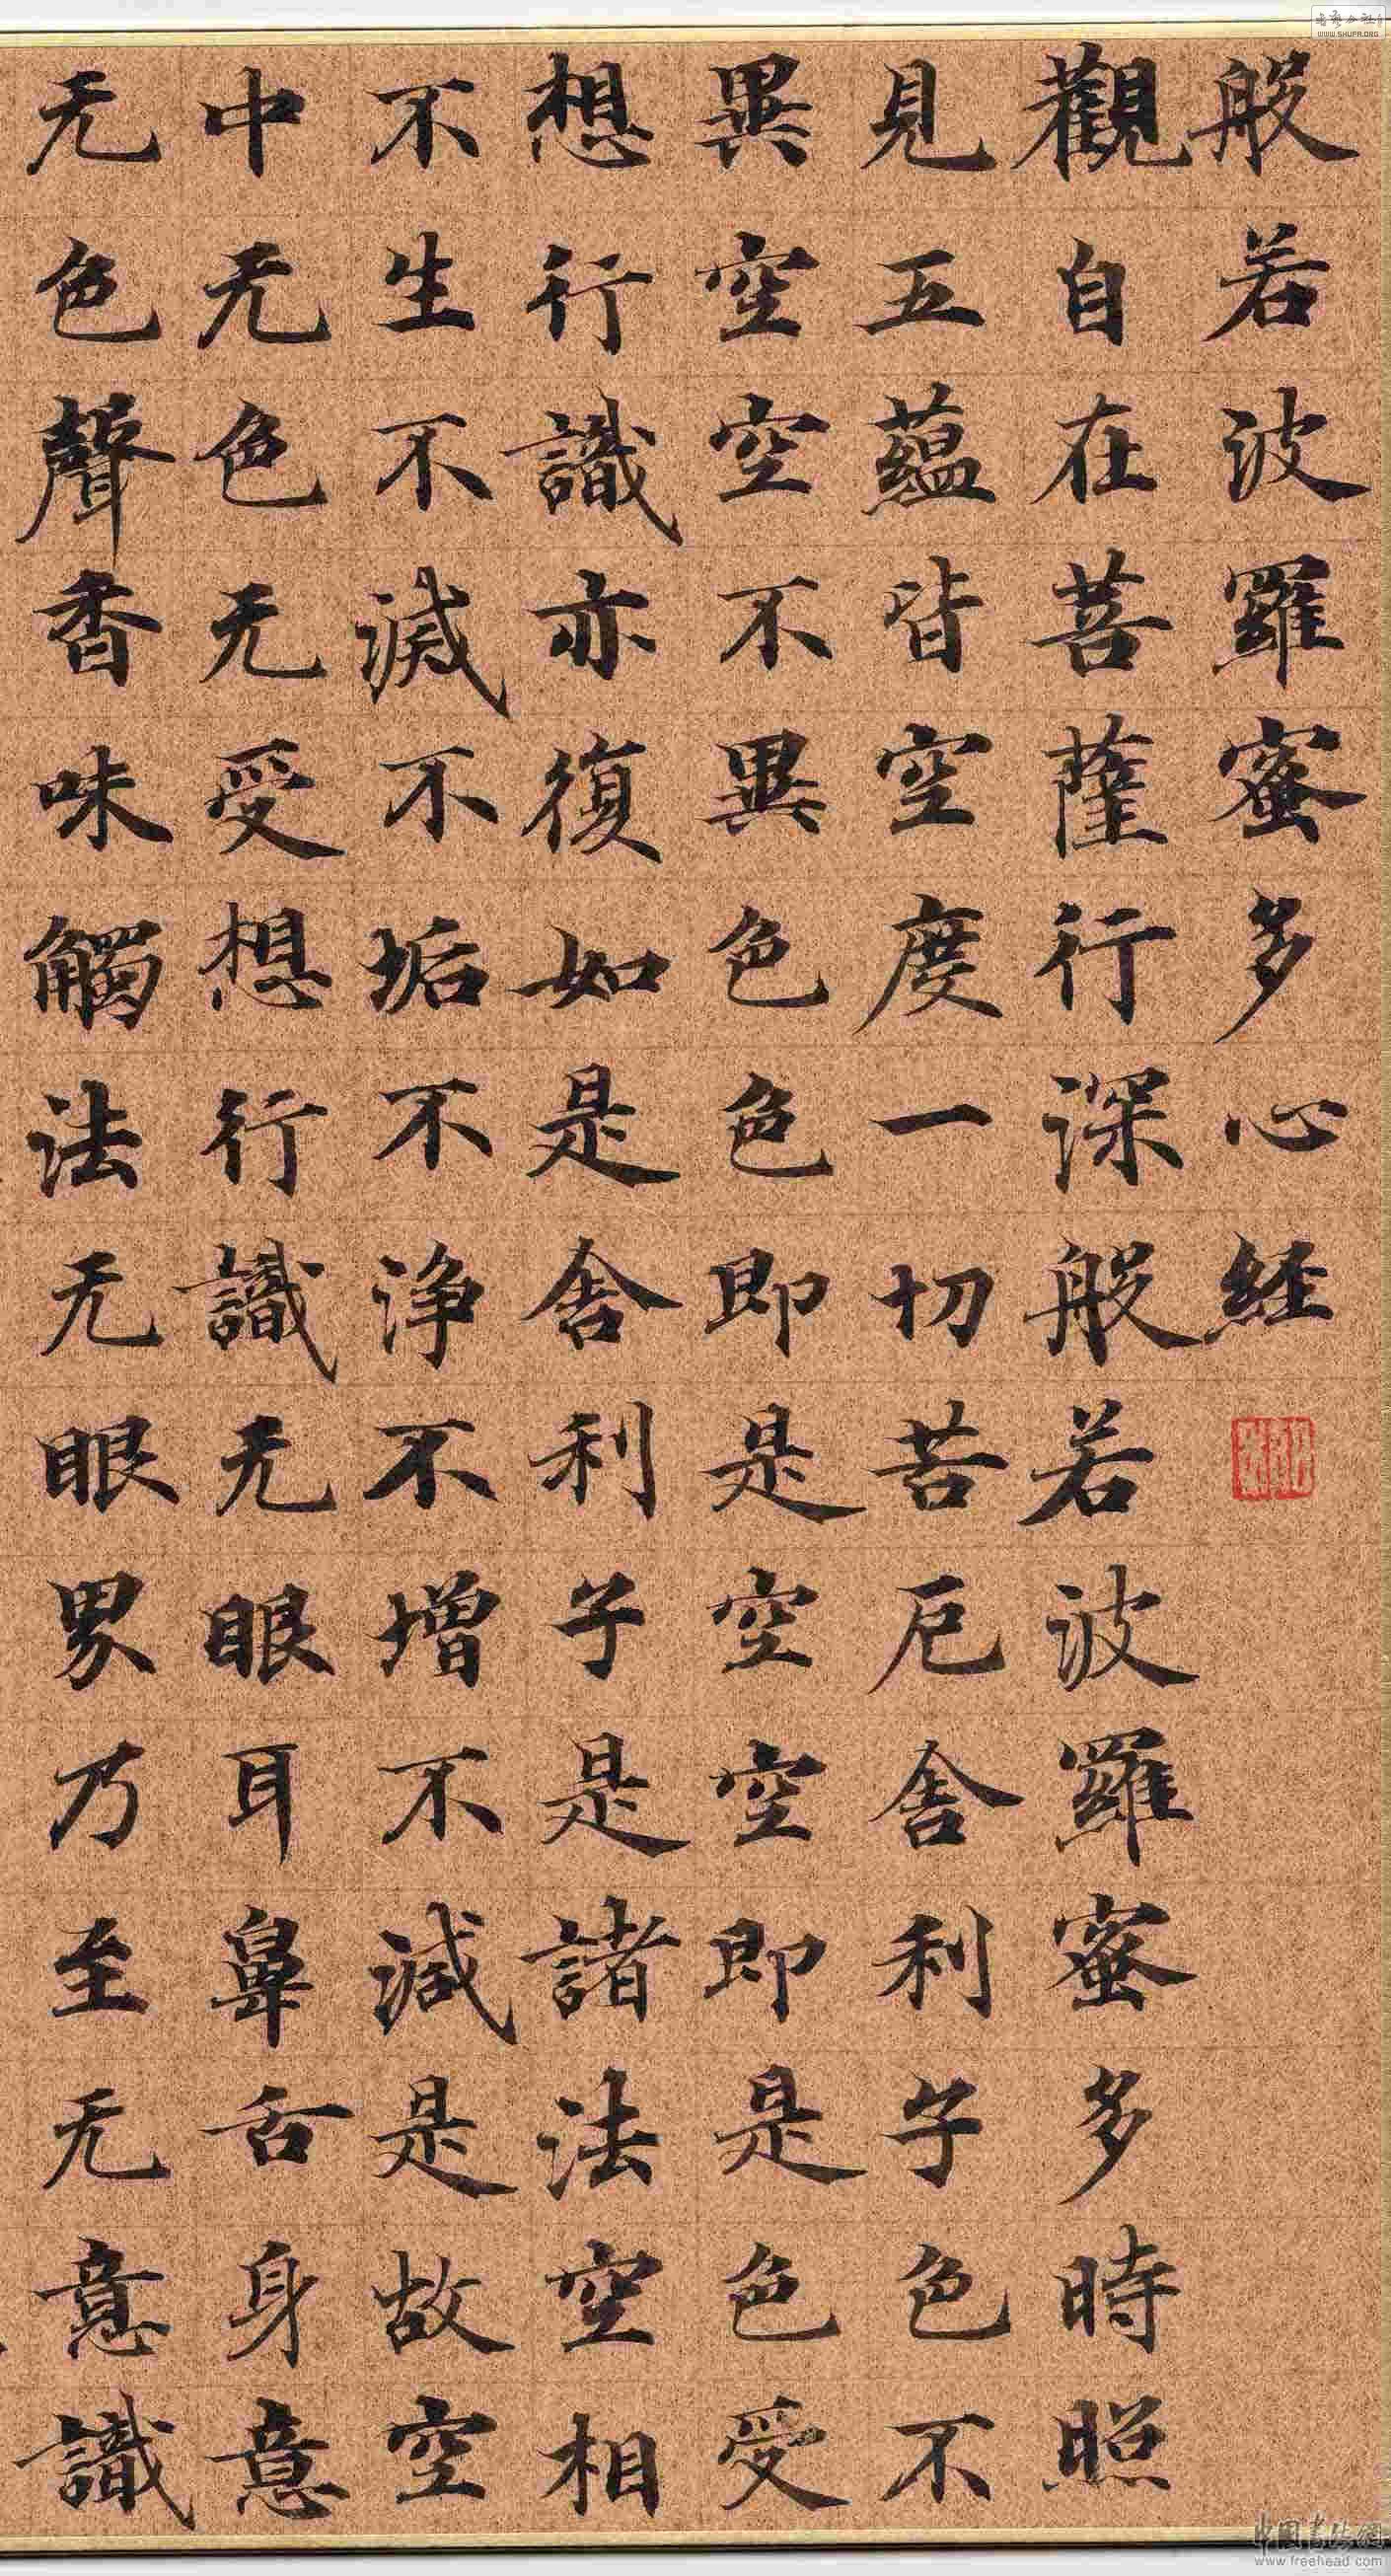 般若波羅蜜多心経
觀自在菩薩行深般若波羅蜜多時照
見五蘊皆空度一切苦厄舍利子色不
異空空不異色色即是空空即是色受
想行識亦復如是舍利子是諸法空相
不生不滅不垢不淨不增不減是故空
中无色无受想行識无眼耳鼻舌身意
无色聲香味觸法无眼界乃至无意識
WWW.SHUFA.ORG
中國書法網
www.freehead.com